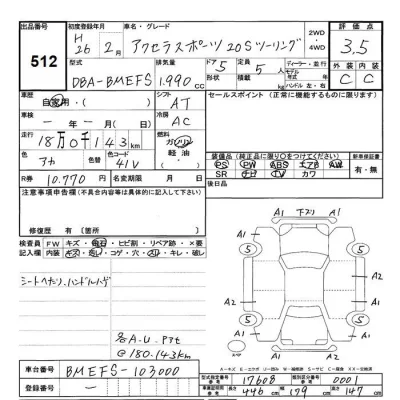 出品番号 512
初度登録年月 H26年 2月
車名・グレード アクセラスポーツ 20Sツーリング
2WD・4WD
評価点 3.5
型式 DBA-BMEFS
排気量 1,990 CC
ドア形状 5
定員 5人
積載 kg
ディーラー・並行
モデル年式
ハンドル 左・右
外装 C
内装 C
車歴 自家用・( )
シフト AT
セールスポイント (正常に機能するものに限る)
車検 ー年ー月ー日
冷房 AC
走行 18万0千143km
燃料 ガソリン 軽油
色 アカ
色替
カラーコード 41V
R券 10,770円
名義変更期限 月 日
装備品(純正品に限り○をつけてください)
PS PW ABS エアB AW
SR ナビ TV カワ
新車保証書 有・無
後日品
注意事項申告欄 (不具合内容等は具体的に記入して下さい)
修復歴 有( )箇所
検査員記入欄 FW キズ・飛石・ヒビ割・リペア跡・×要
内装 キズ・汚レ・コゲ・穴・スレ・キレ・破レ
シートヘタリ、ハンドルハゲ
各A-U Pアt
@180.143km
A1 下スリ A1
5 5
A1
A2
A2
A2
5 5
A1 A1
車台番号 BMEFS-103000
登録番号 ー
型式指定番号 17608
類別区分番号 0001
長さ 446 cm 幅 179 cm 高さ 147 cm